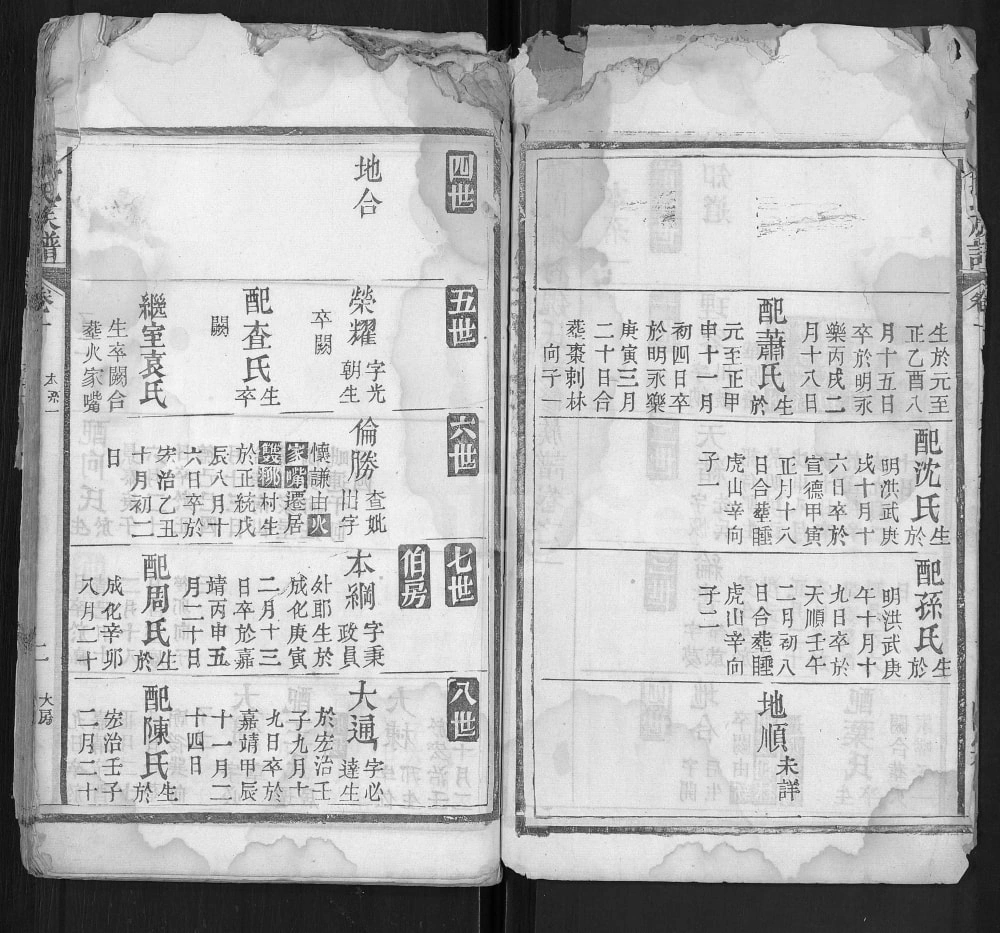 生於元至
正乙酉八
月十五日
卒於明永
樂丙戌二
月十八日
配蕭氏生於
元至正甲
申十一月
初四日卒
於明永樂
庚寅三月
二十日合
葬棗剌林
向子一
配沈氏生於
明洪武庚
戌十月十
六日卒於
宣德甲寅
正月十八
日合葬睡
虎山辛向
子一
配孫氏生於
明洪武庚
午十月十
九日卒於
天順壬午
二月初八
日合葬睡
虎山辛向
子二
地順未詳
四世
地合
五世
榮耀字光朝生
卒闕
配查氏生卒
闕
繼室袁氏
生卒闕合
葬火家嘴
六世
倫勝查妣出字
懷謙由火
家嘴遷居
村生
於正統戊
辰八月十
六日卒於
宏治乙丑
十月初二
日
七世
伯房
本綱字秉政員
外郎生於
成化庚寅
二月十三
日卒於嘉
靖丙申五
月二十日
配周氏生於
成化辛卯
八月二十
八世
大通字必達生
於宏治壬
子九月十
九日卒於
嘉靖甲辰
十一月二
十四日
配陳氏生於
宏治壬子
二月二十
氏族譜
二
大房